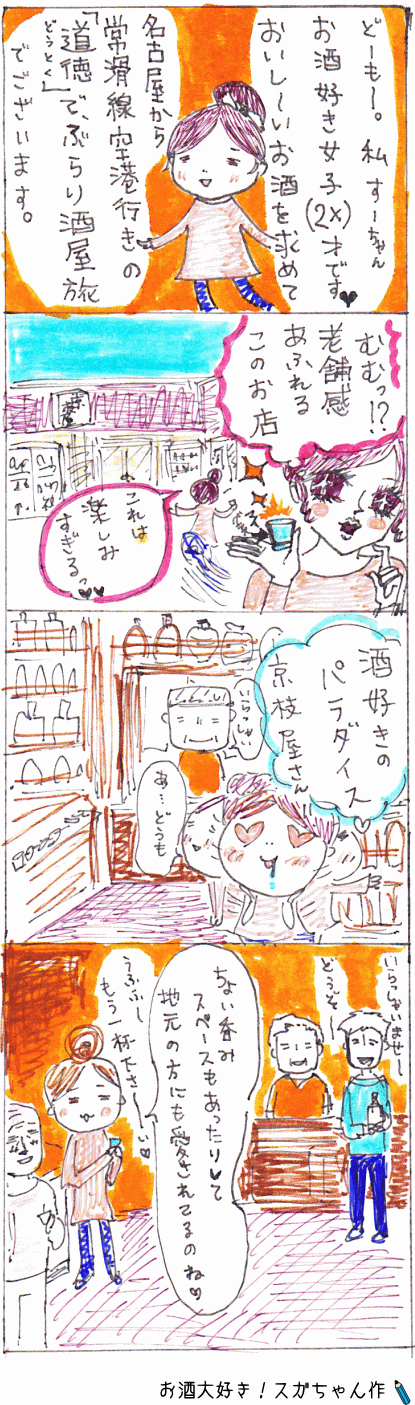 どーもー。私 すーちゃん
お酒好き女子(2X)才です♥
おいし〜いお酒を求めて
名古屋から
常滑線空港行きの
「道徳」で、ぶらり酒屋旅
どうとく
でございます。
むむっ!?
老舗感
あふれる
このお店
これは
楽しみ
すぎるっ♥♥
酒好きの
パラダイス♡
京枝屋さん
いらっしゃい
あ…どうも
いらっしゃいませ〜
どうぞ〜
ちょい呑み
スペースもあったりして
地元の方にも愛されてるのね♡
うふふ〜
もう一杯ださ〜い♡
お酒大好き！スガちゃん作